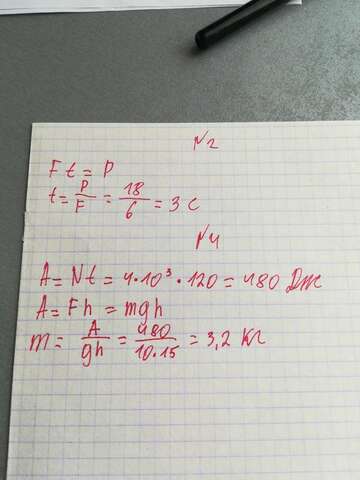 N2
Ft = P
t = P/F = 18/6 = 3 с
N4
A = Nt = 4·10³·120 = 480 Дж
A = Fh = mgh
m = A/gh = 480/10·15 = 3,2 кг